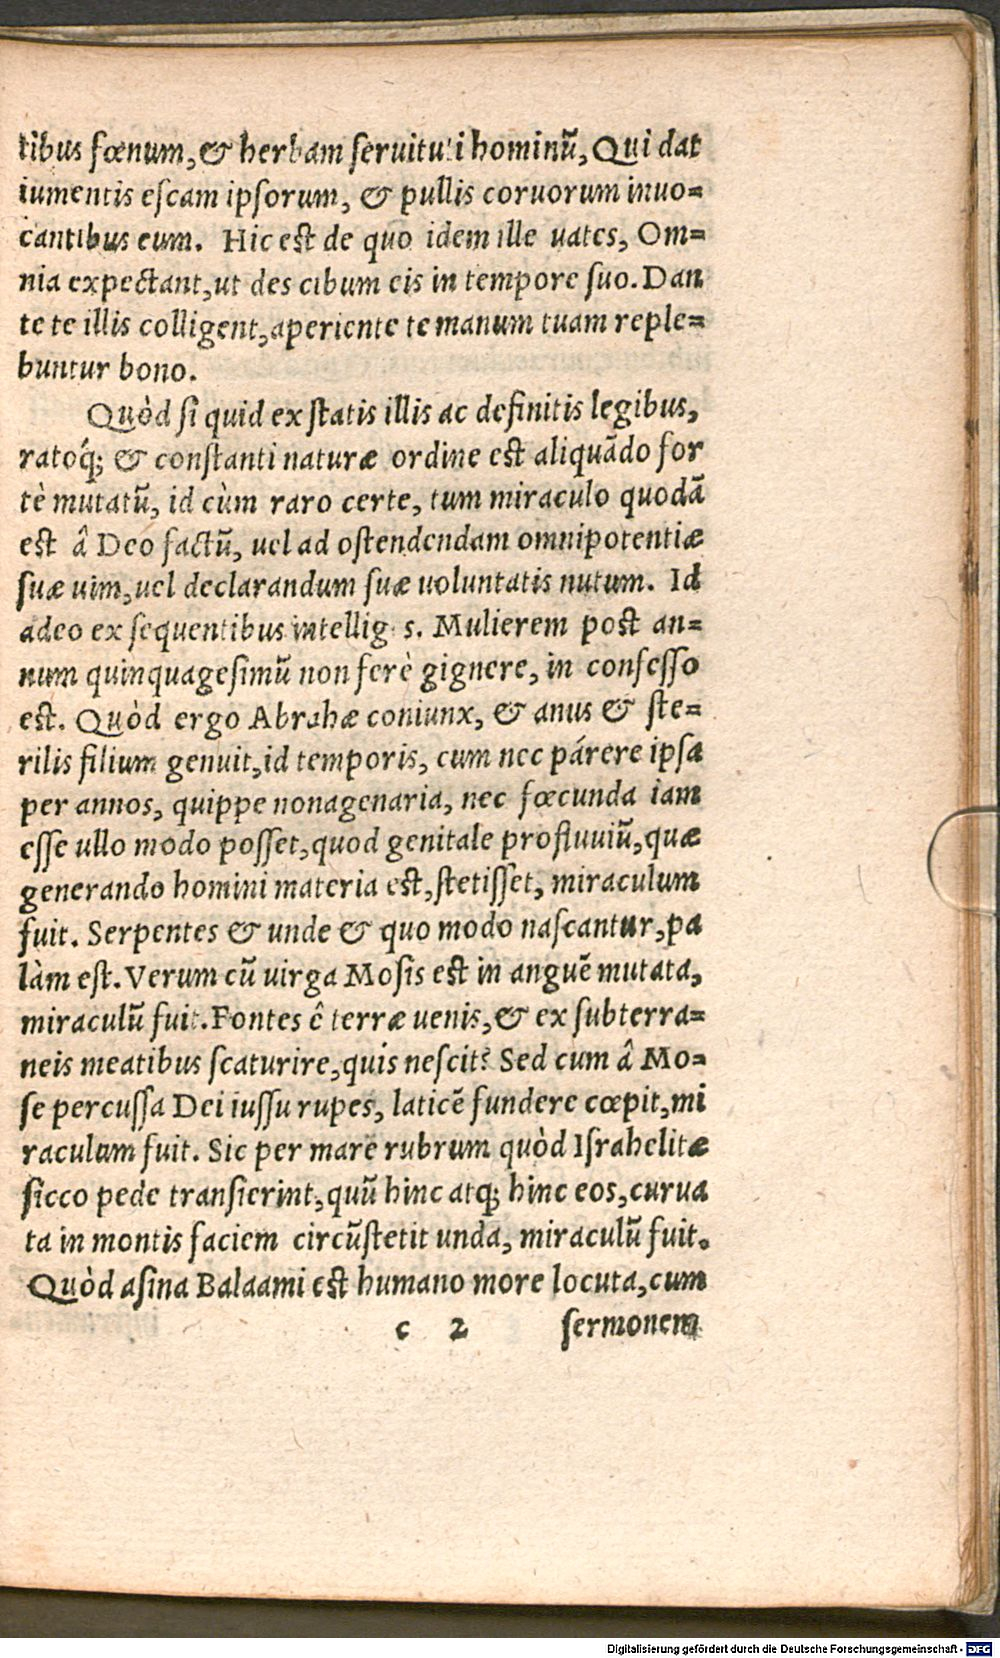 tibus fœnum, & herbam seruituti hominũ, Qui dat
iumentis escam ipsorum, & pullis coruorum inuo=
cantibus eum. Hic est de quo idem ille uates, Om=
nia expectant, ut des cibum eis in tempore suo. Dan
te te illis colligent, aperiente te manum tuam reple=
buntur bono.
Quòd si quid ex statis illis ac definitis legibus,
ratoq́; & constanti naturæ ordine est aliquãdo for
tè mutatũ, id cùm raro certe, tum miraculo quodã
est â Deo factũ, uel ad ostendendam omnipotentiæ
suæ uim, uel declarandum suæ uoluntatis nutum. Id
adeo ex sequentibus intelliges. Mulierem post an=
num quinquagesimũ non ferè gignere, in confesso
est. Quòd ergo Abrahæ coniunx, & anus & ste=
rilis filium genuit, id temporis, cum nec párere ipsa
per annos, quippe nonagenaria, nec fœcunda iam
esse ullo modo posset, quod genitale profluuiũ, quæ
generando homini materia est, stetisset, miraculum
fuit. Serpentes & unde & quo modo nascantur, pa
làm est. Verum cũ uirga Mosis est in anguẽ mutata,
miraculũ fuit. Fontes ê terræ uenis, & ex subterra=
neis meatibus scaturire, quis nescit? Sed cum â Mo=
se percussa Dei iussu rupes, laticẽ fundere cœpit, mi
raculum fuit. Sic per mare rubrum quòd Israhelitæ
sicco pede transierint, quũ hinc atq; hinc eos, curua
ta in montis faciem circũstetit unda, miraculũ fuit.
Quòd asina Balaami est humano more locuta, cum
c 2 sermonem
Digitalisierung gefördert durch die Deutsche Forschungsgemeinschaft - DFG